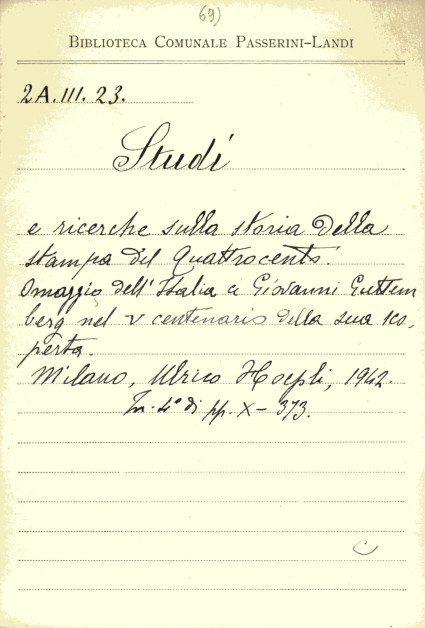 69)
BIBLIOTECA COMUNALE PASSERINI-LANDI
2A.III.23.
Studi
e ricerche sulla storia della
stampa del Quattrocento.
Omaggio dell'Italia a Giovanni Guttem
berg nel V centenario della sua sco,
perta.
Milano, Ulrico Hoepli, 1942.
In-4° di pp. X-373.
C